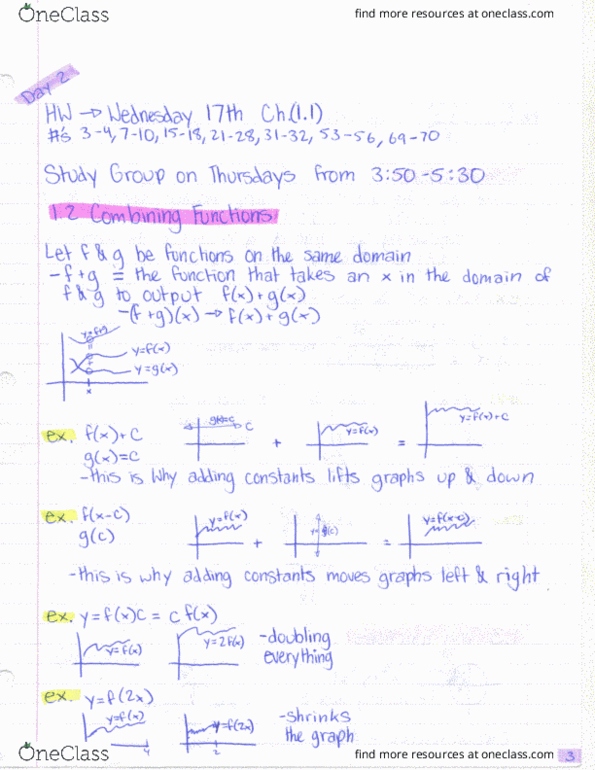 OneClass
find more resources at oneclass.com
Day 2
HW → Wednesday 17th Ch.(1.1)
#'s 3-4, 7-10, 15-18, 21-28, 31-32, 53-56, 69-70
Study Group on Thursdays from 3:50-5:30
1.2 Combining Functions
Let f & g be functions on the same domain
-f+g = the function that takes an x in the domain of
f & g to output f(x)+g(x)
-(f+g)(x) → f(x)+g(x)
y=f+g
y=f(x)
y=g(x)
x
ex. f(x)+C
g(x)=C
g(x)=C
C
+
y=f(x)
=
y=f(x)+C
-this is why adding constants lifts graphs up & down
ex. f(x-c)
g(c)
y=f(x)
+
g(c)
=
y=f(x-c)
-this is why adding constants moves graphs left & right
ex. y=f(x)C = c f(x)
y=f(x)
y=2f(x)
-doubling
everything
ex. y=f(2x)
y=f(x)
4
y=f(2x)
2
-shrinks
the graph
OneClass
find more resources at oneclass.com
3